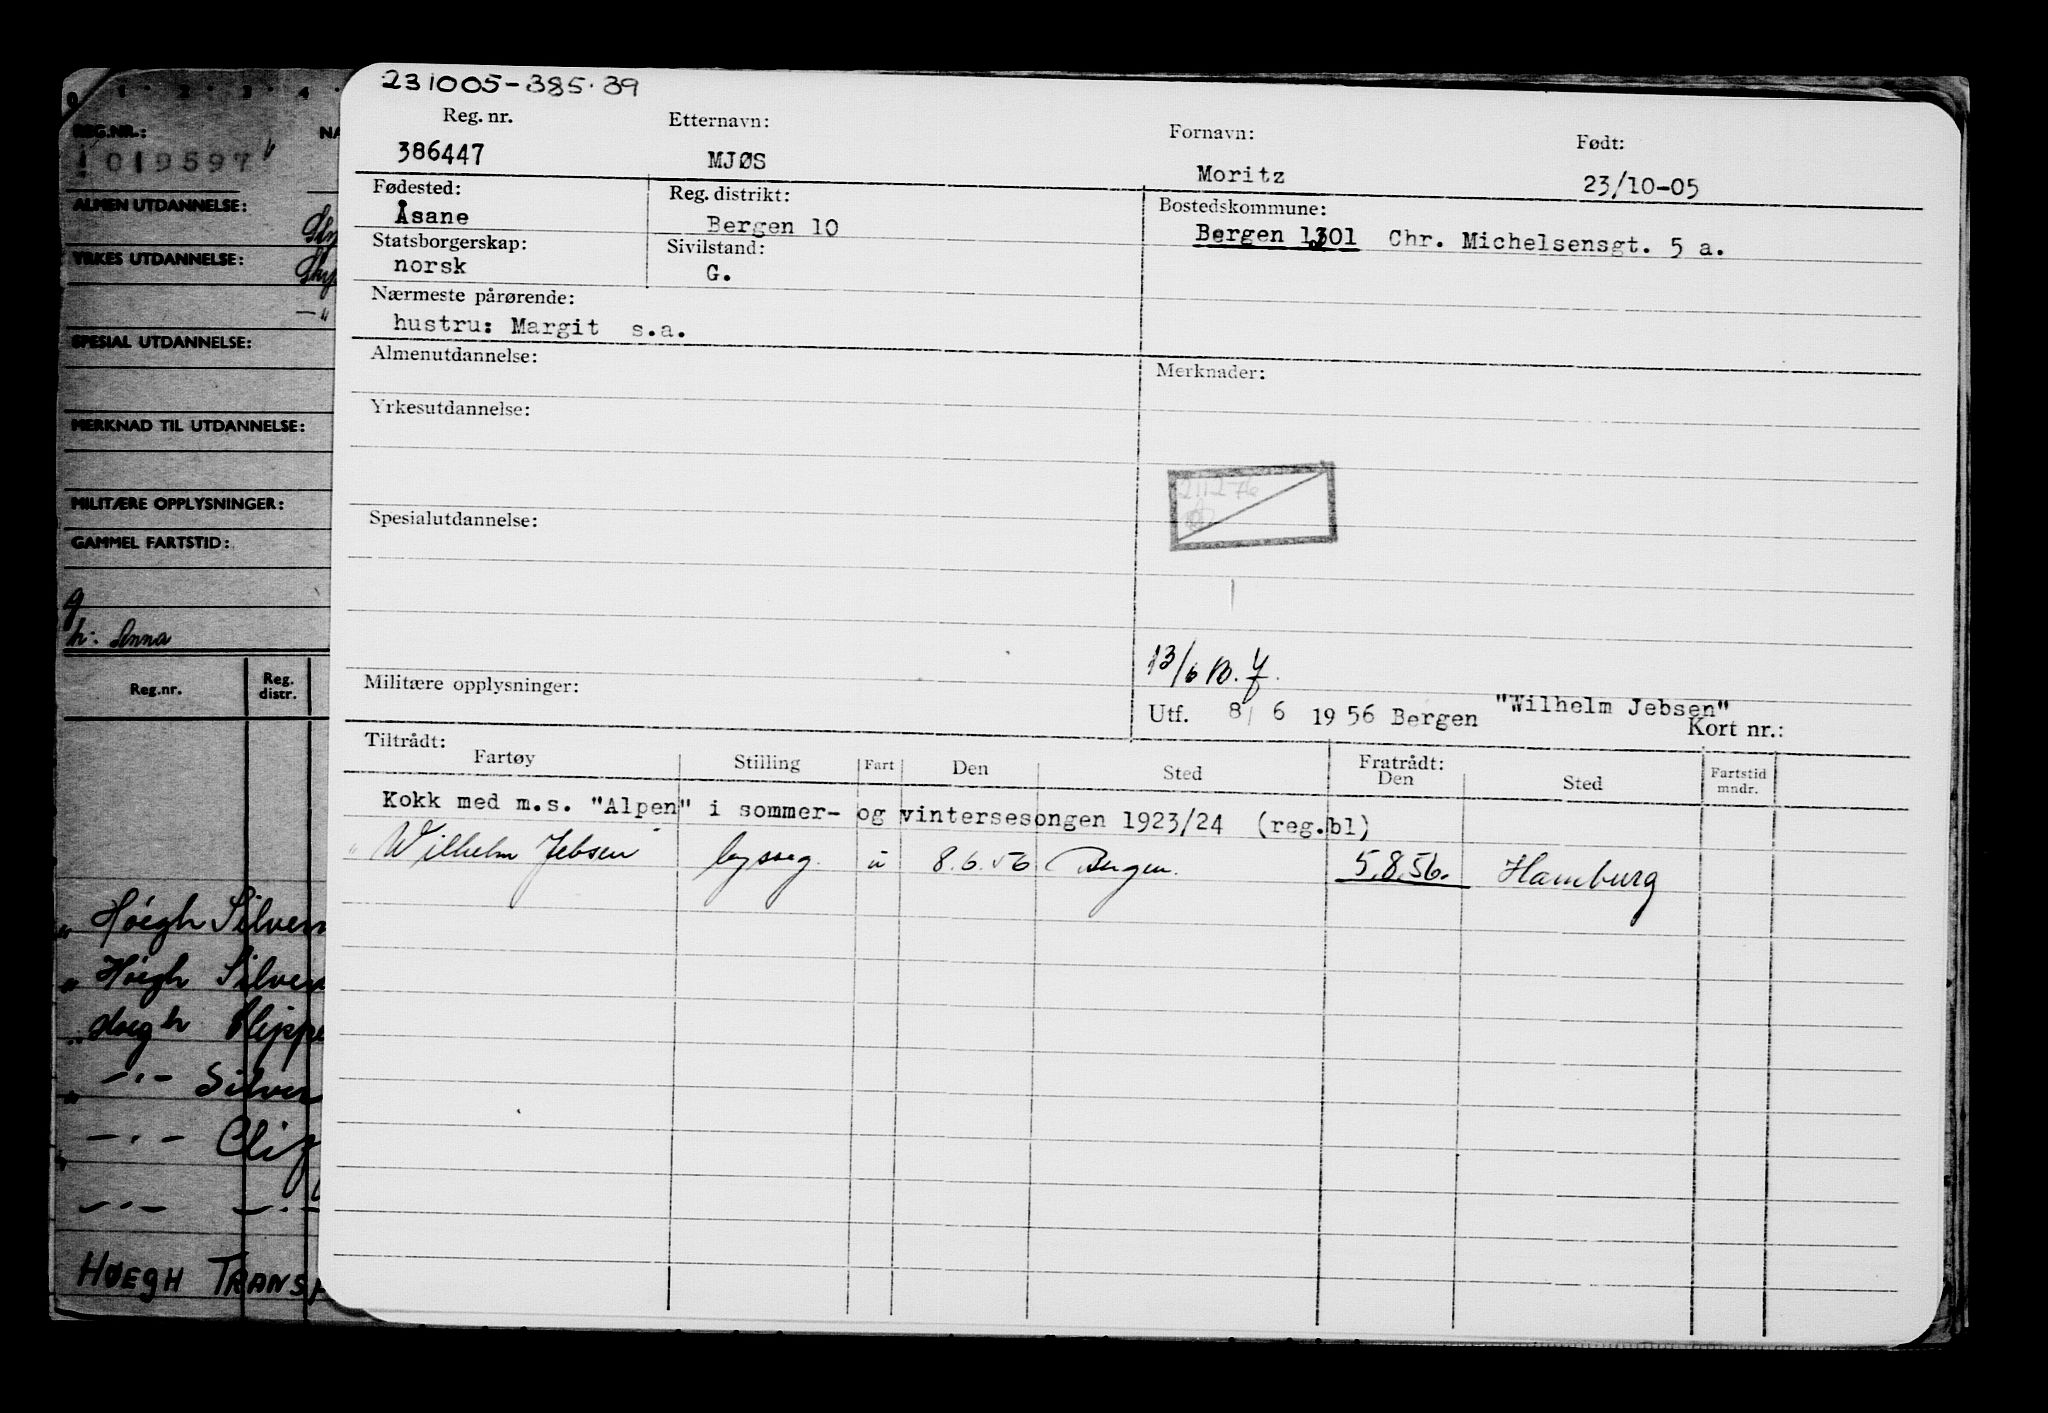 231005-385.39
Reg. nr. Etternavn: Fornavn: Født:
386447 MJØS Moritz 23/10-05
Fødested: Reg. distrikt: Bostedskommune:
Åsane Bergen 10 Bergen 1301 Chr. Michelsensgt. 5 a.
Statsborgerskap: Sivilstand:
norsk G.
Nærmeste pårørende:
hustru: Margit s.a.
Almenutdannelse: Merknader:
Yrkesutdannelse:
Spesialutdannelse:
13/6
Militære opplysninger:
Utf. 8/6 1956 Bergen "Wilhelm Jebsen"
Kort nr.:
Tiltrådt: Fratrådt:
Fartøy Stilling Fart Den Sted Den Sted Fartstid mndr.
Kokk med m.s. "Alpen" i sommer- og vintersesongen 1923/24 (reg.bl)
" Wilhelm Jebsen byssg. u 8.6.56 Bergen. 5.8.56. Hamburg
0 1 2 3 4
REG.NR.: NA
1019597
ALMEN UTDANNELSE:
YRKES UTDANNELSE:
SPESIAL UTDANNELSE:
MERKNAD TIL UTDANNELSE:
MILITÆRE OPPLYSNINGER:
GAMMEL FARTSTID:
g
h: Anna
Reg.nr. Reg. distr.
" Höegh Silver
" Höegh Silver
" Höegh Klippe
" -"- Silver
" -"- Clip
-"- -"-
HØEGH TRANSP